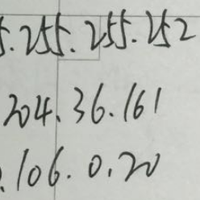 5.255.255.252
204.36.161
.106.0.20